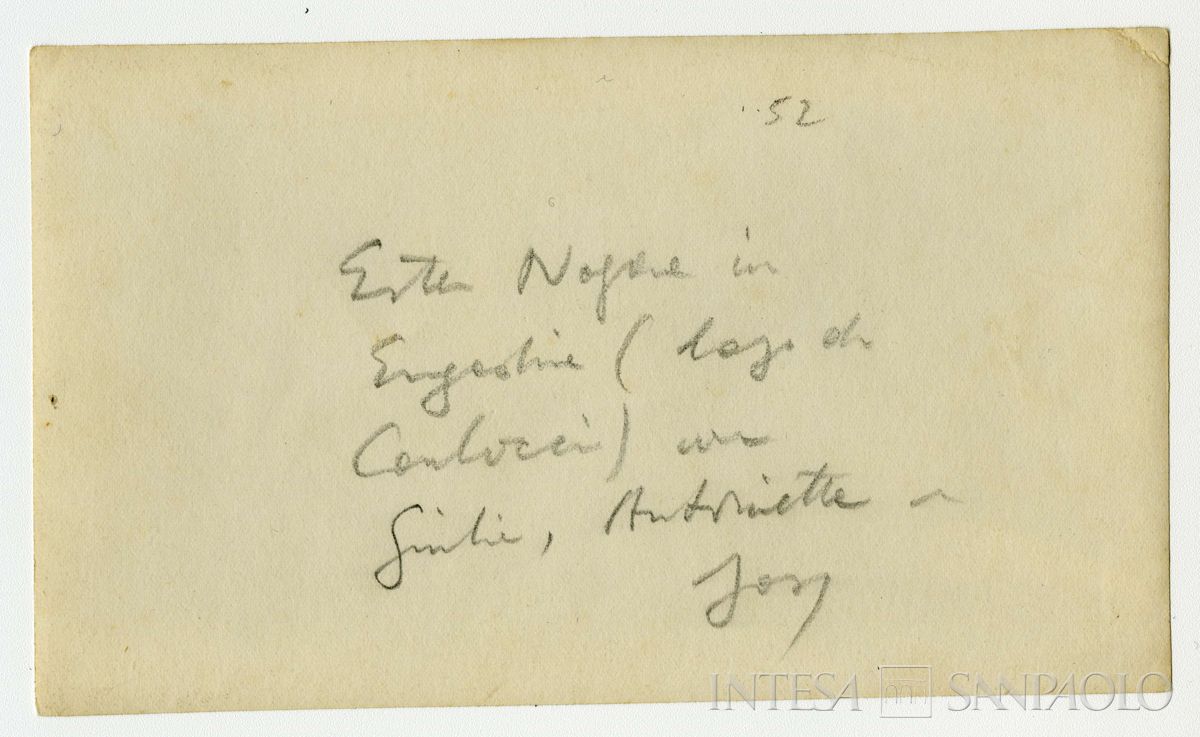 52
Ester Nagore in
Engadina (lago di
Carloccin) con
Giulia, Antoinette e
Josy
INTESA SANPAOLO